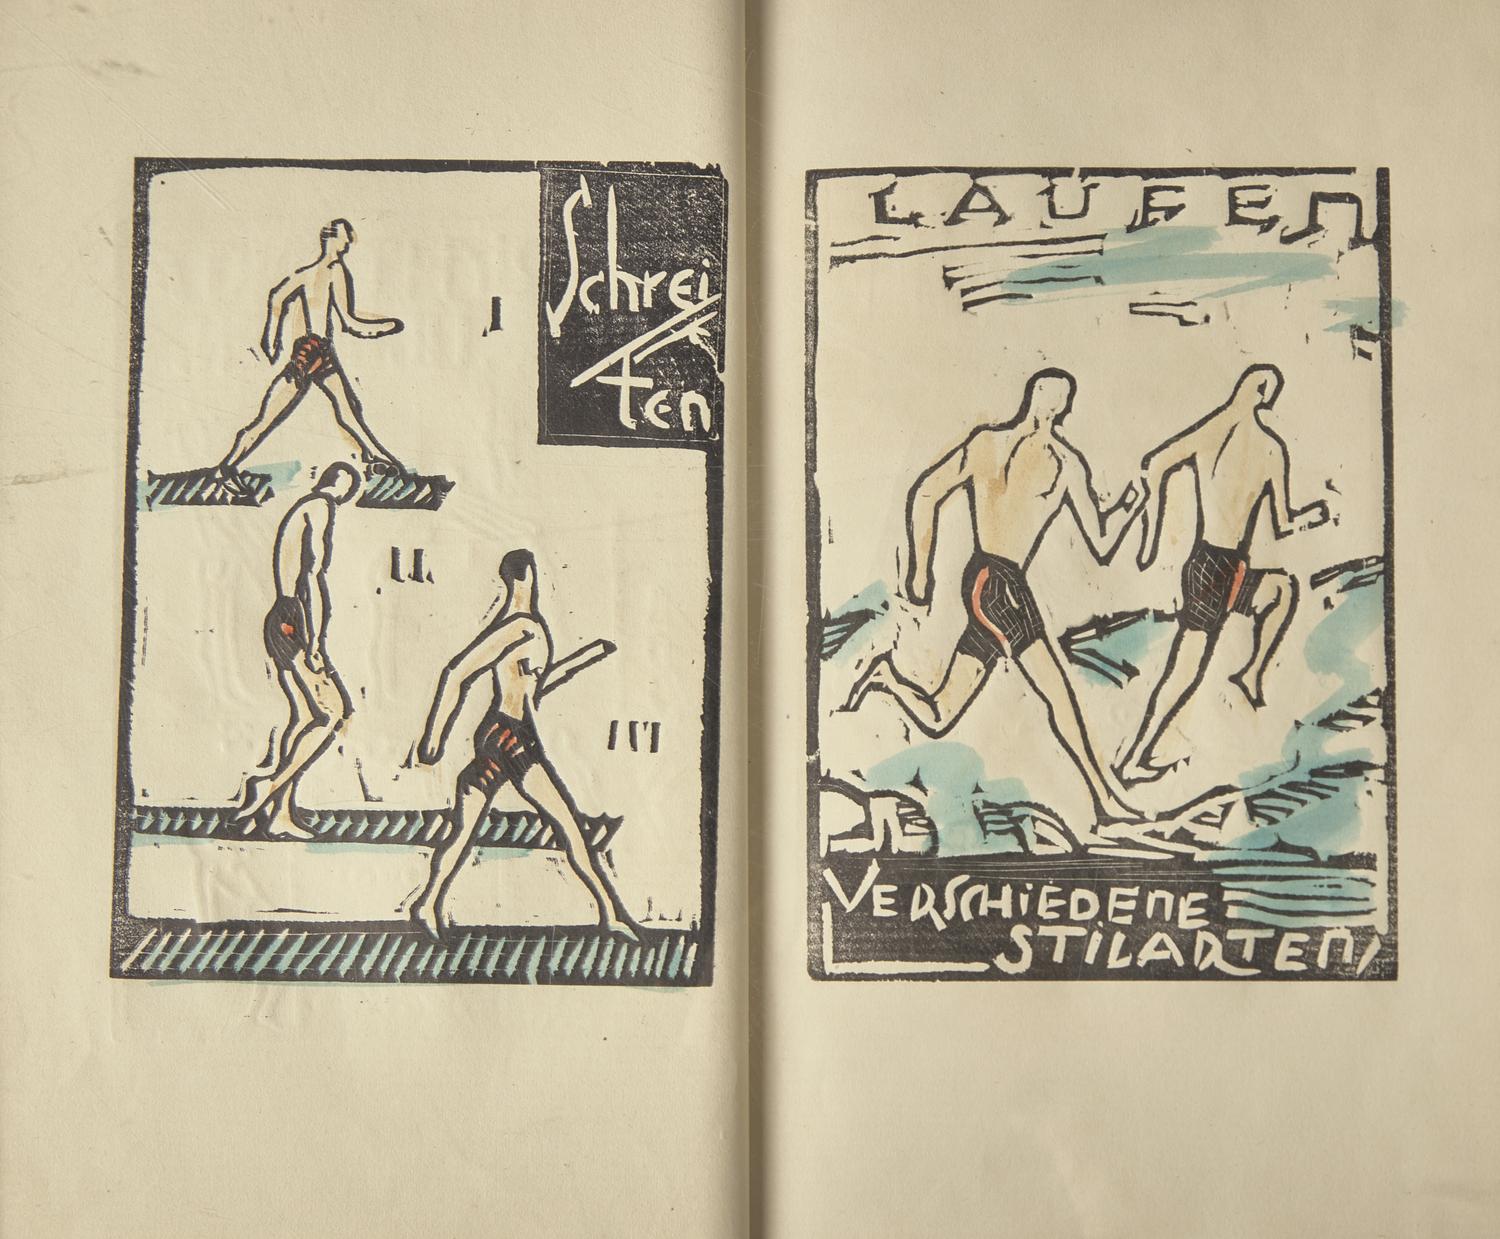 Schrei
ten
I
II.
III
LAUFEN
VERSCHIEDENE
STILARTEN